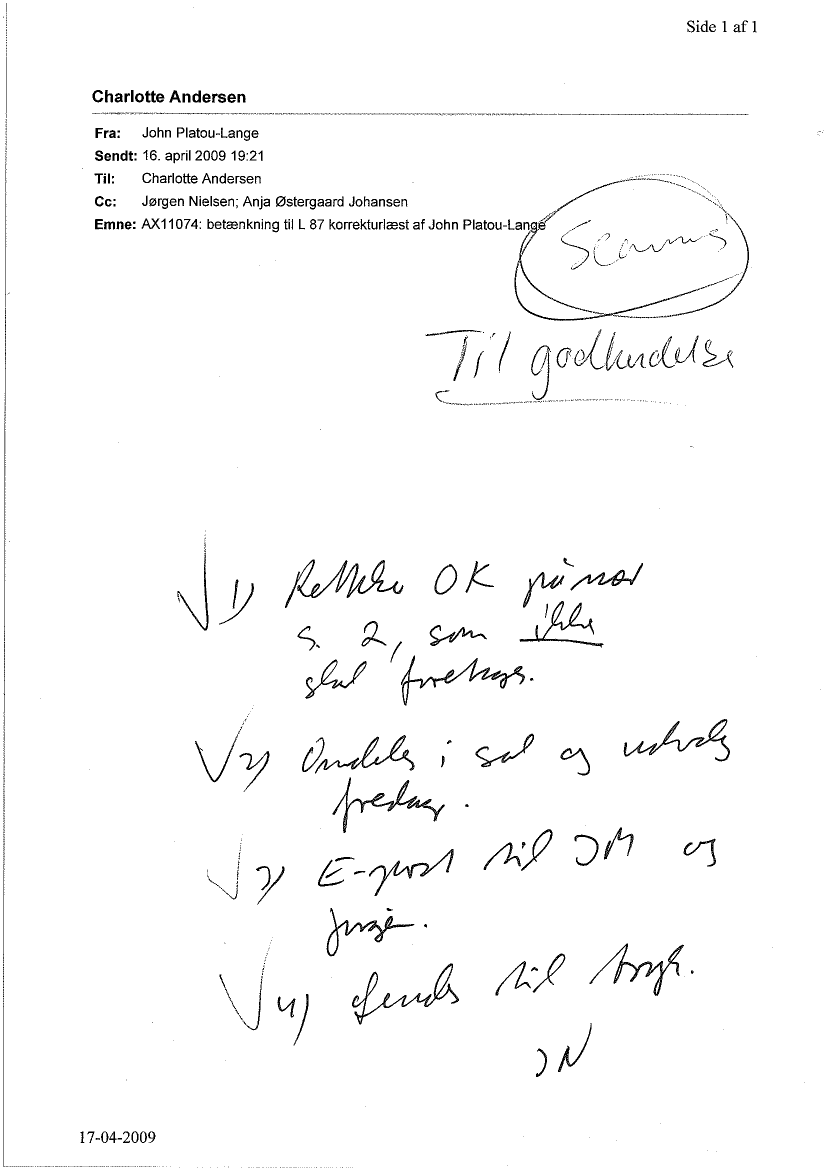 Side 1 af 1
Charlotte Andersen
Fra: John Platou-Lange
Sendt: 16. april 2009 19:21
Til: Charlotte Andersen
Cc: Jørgen Nielsen; Anja Østergaard Johansen
Emne: AX11074: betænkning til L 87 korrekturlæst af John Platou-Lange
Til godkendelse
1) OK på nær
s. 2, som ikke
skal foretages.
2) Omdeles i sal og udvalg
fredag.
3) E-post til JM og
4) Sendes til tryk.
JN
17-04-2009